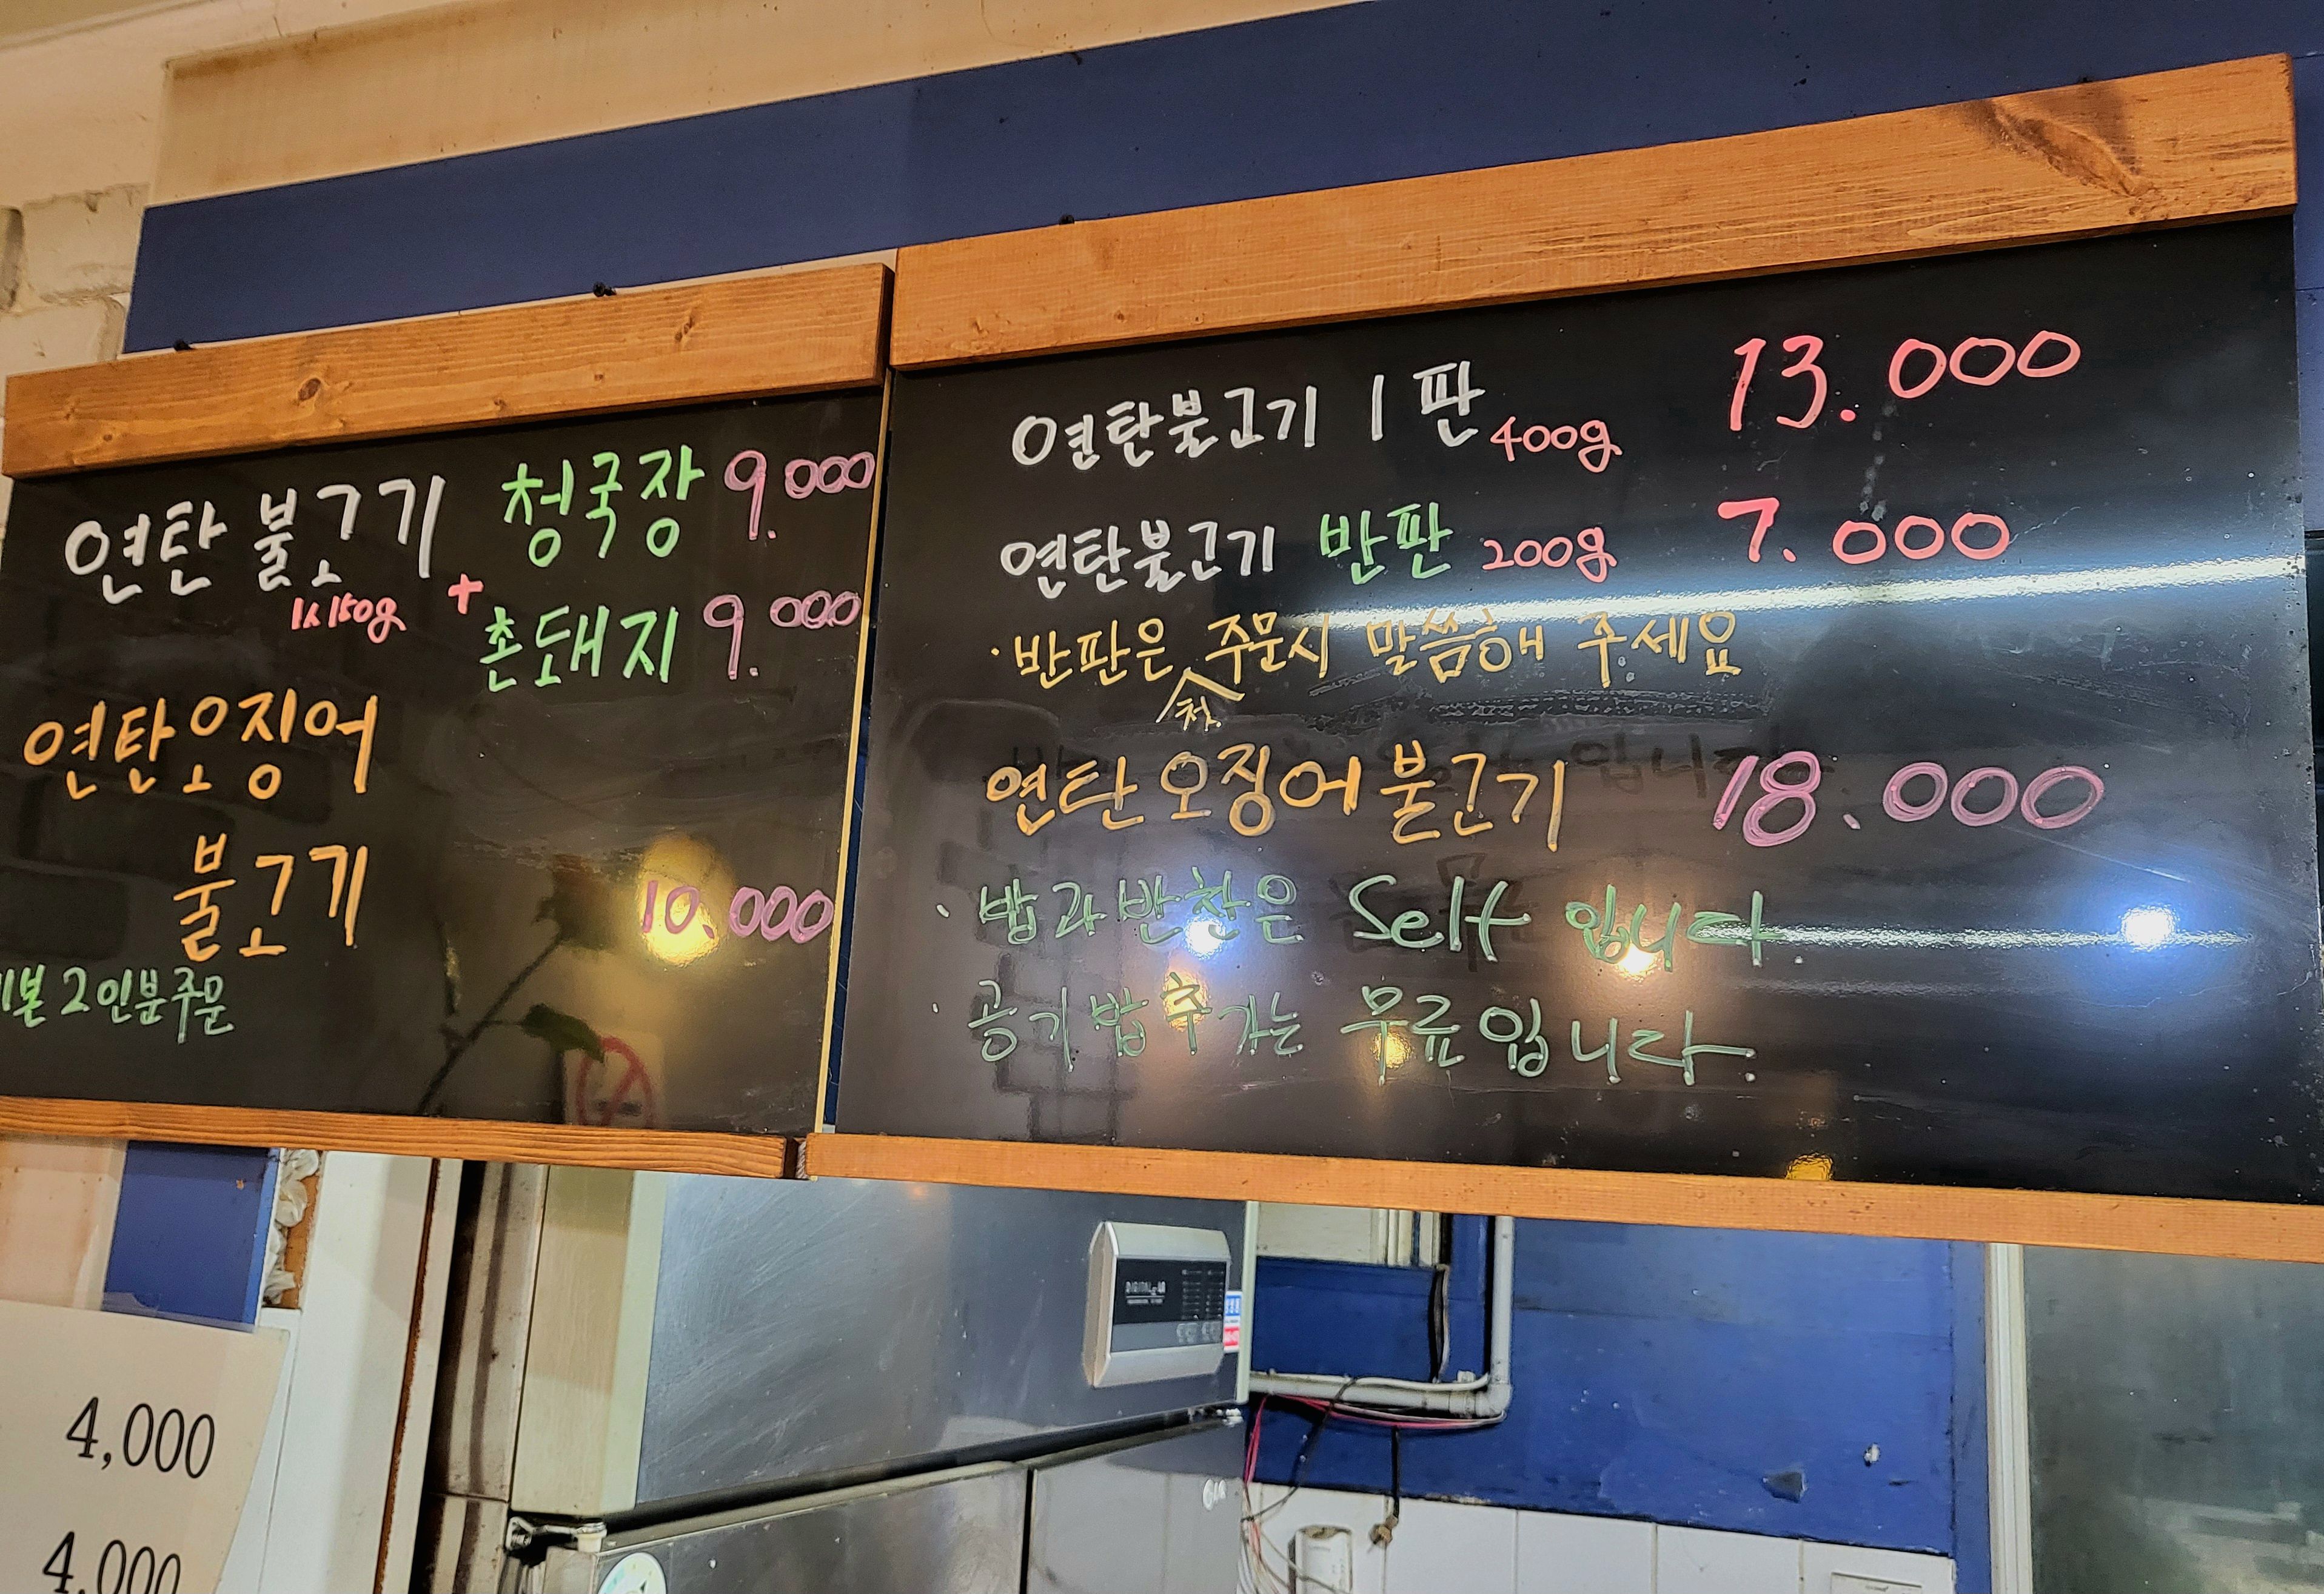 연탄 불고기 청국장 9.000
1人150g + 촌돼지 9.000
연탄오징어
불고기 10.000
기본 2인분주문
연탄불고기 1판 400g 13.000
연탄불고기 반판 200g 7.000
· 반판은 첫 주문시 말씀해 주세요
연탄 오징어 불고기 18.000
· 밥과 반찬은 Self 입니다
· 공기밥추가는 무료입니다.
4,000
4,000